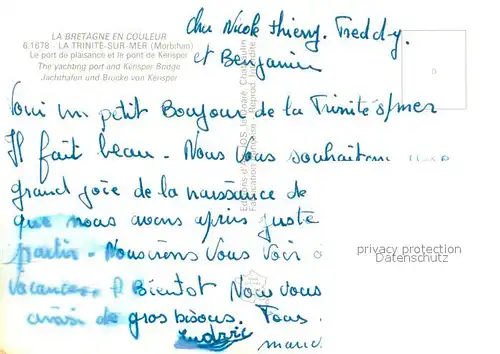 LA BRETAGNE EN COULEUR
6.1678 - LA TRINITÉ-SUR-MER (Morbihan)
Le port de plaisance et le pont de Kérisper
The yachting port and Kerisper Bridge
Jachthafen und Brücke von Kérisper
cher Nicole Thierry. Freddy.
et Benjamin
Voici un petit Boujour de la Trinité s/mer
Il fait beau. Nous Vous souhaitons une
grand joie de la naissance de
que nous avons apris juste
partir. Nous irons Vous Voir
Vacances. A Bientot Nous Vous
de gros bisous. Tous
Ludovic
privacy protection
Datenschutz